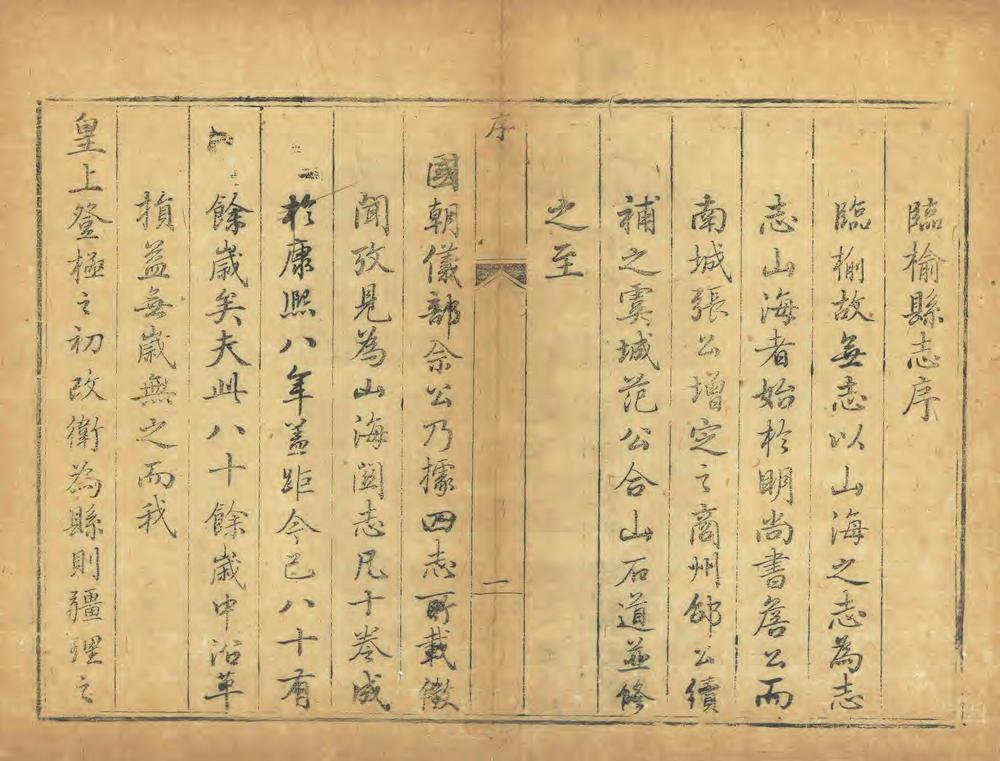 臨榆縣志序
臨榆故無志以山海之志為志
志山海者始於明尚書詹公而
南城張公增定之商州邵公續
補之虞城范公合山石道並修
之至
序
二
國朝儀部佘公乃據四志所載徵
聞攷見為山海関志凡十卷成
於康熙八年蓋距今已八十有
餘歲矣夫此八十餘歲中沿革
損益無歲無之而我
皇上登極之初改衛為縣則疆理之